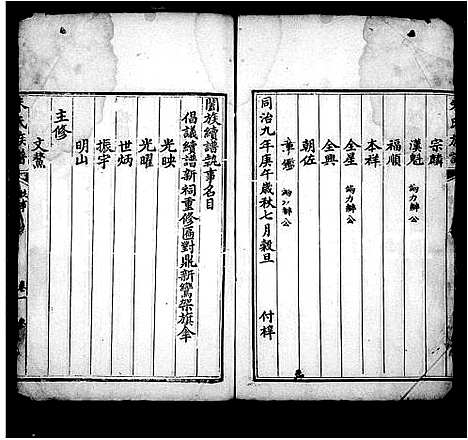 宗麟
漢魁 協力辦公
福順
本祥
金星 協力辦公
金興
朝佐
協力辦公
同治九年庚午歲秋七月穀旦 付梓
闔族續譜執事名目
倡議續譜新祠重修匾對鼎新鸞架旗傘
光映
光曜
世炳
振宇
明山
主修
文鰲
氏族譜
卷一